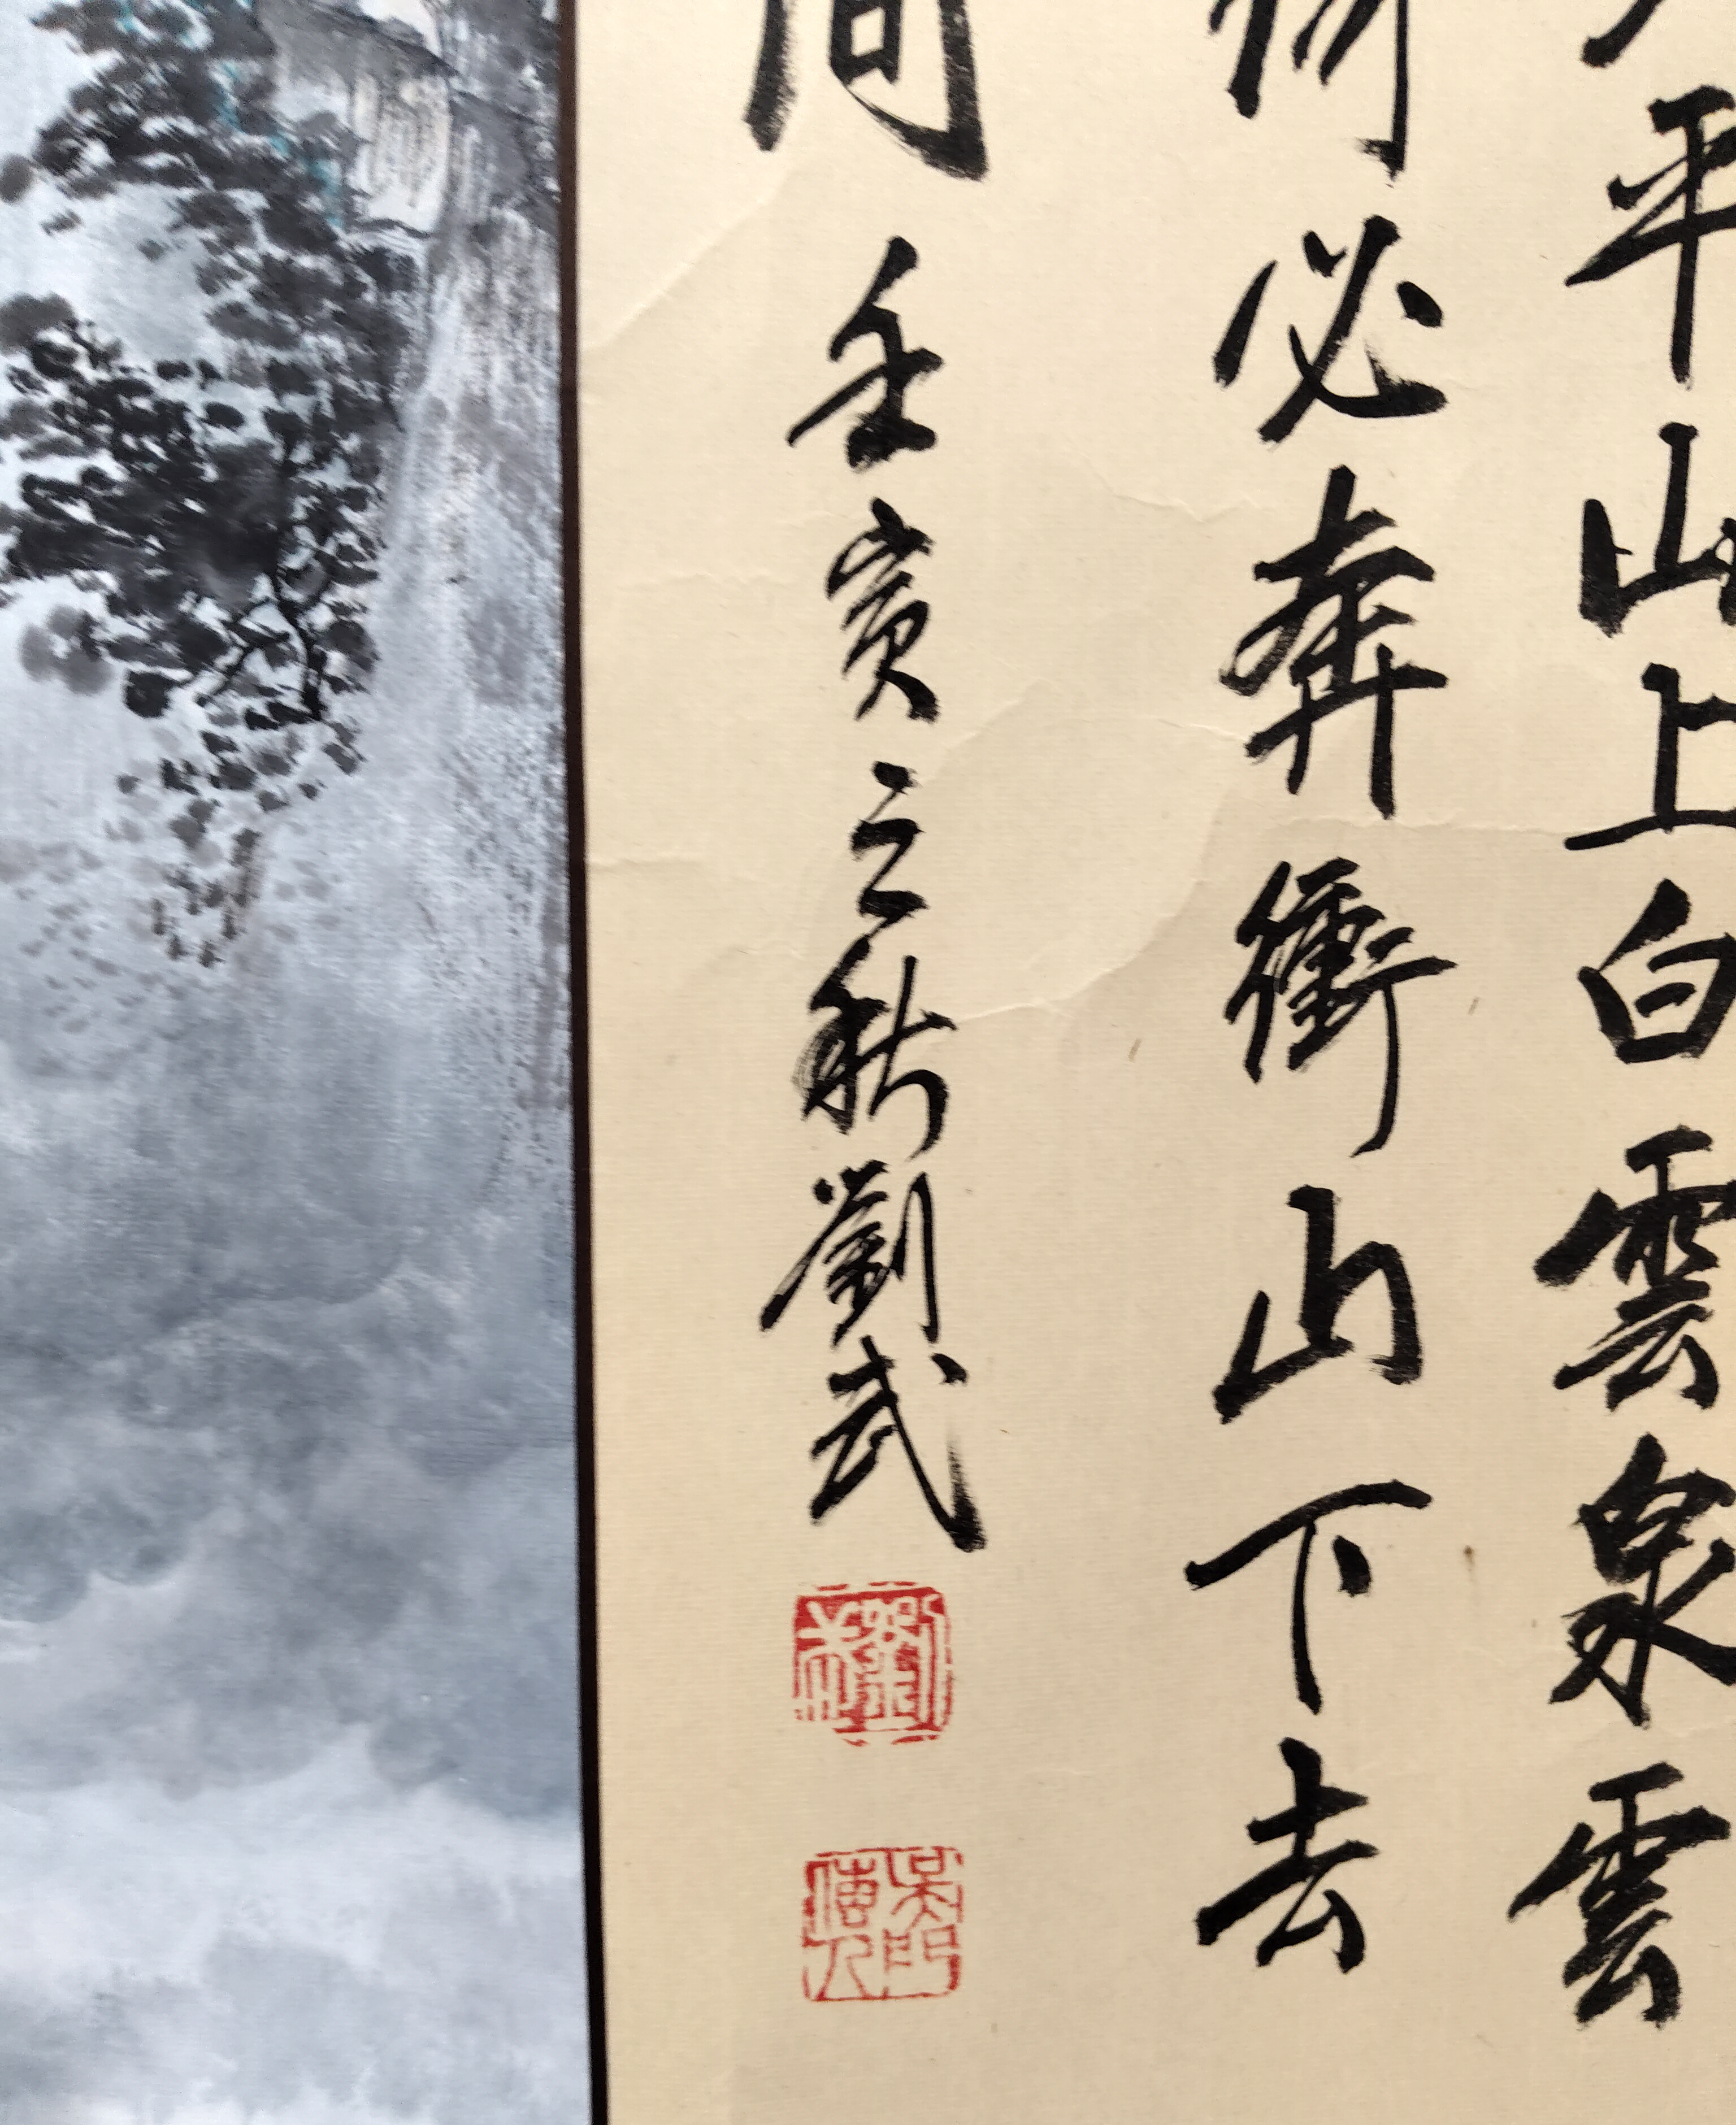 平山上白雲泉雲
必奔衝山下去
間壬寅之秋劉武
劉
吳門
僊人